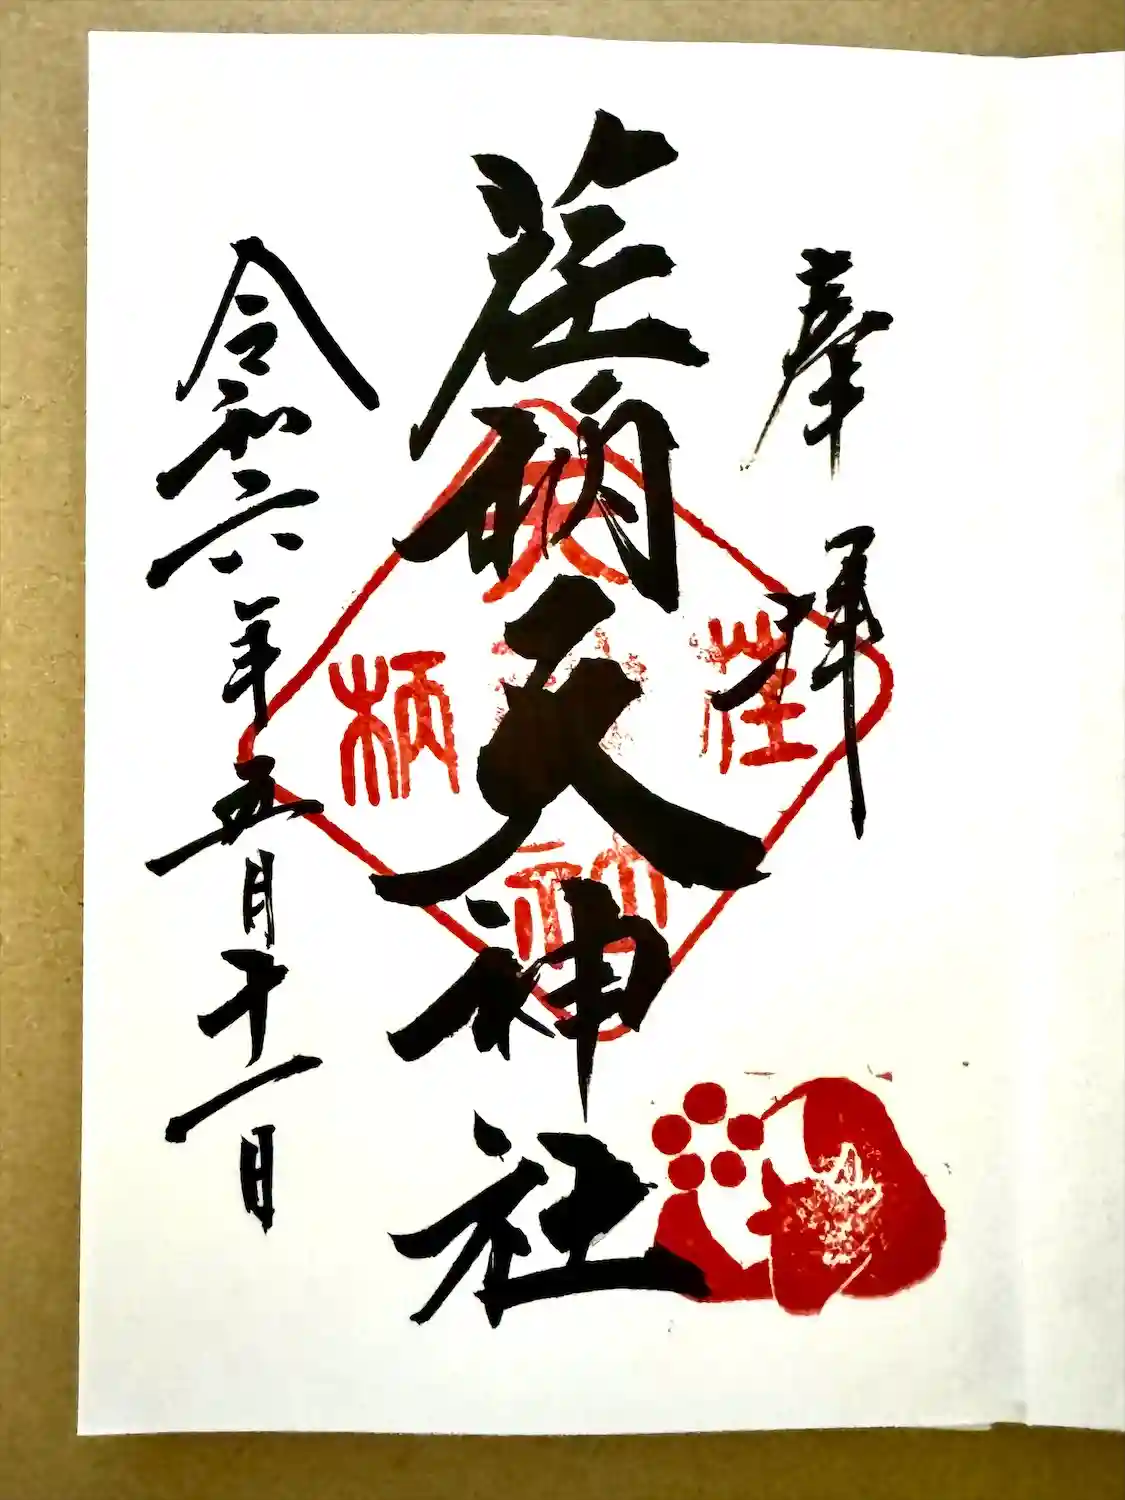 奉拝
荏柄天神社
令和六年五月十一日
天
荏
柄
神